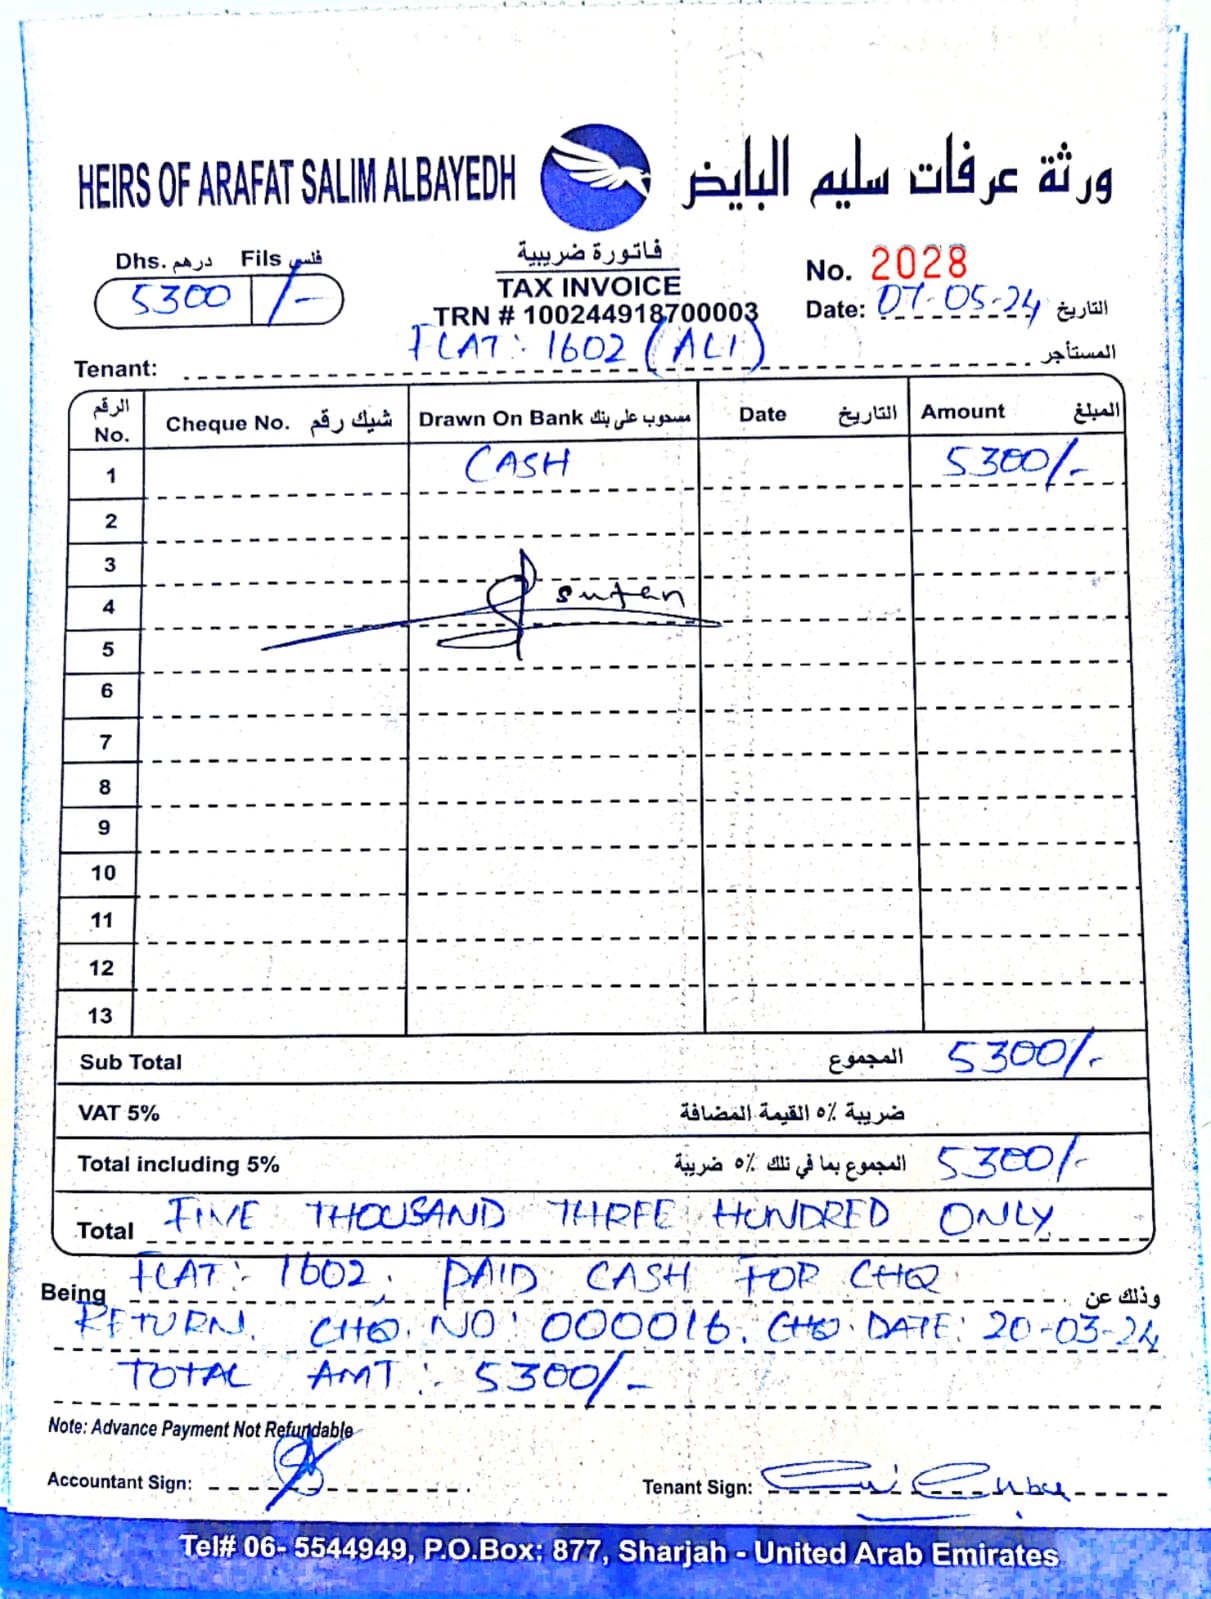 HEIRS OF ARAFAT SALIM ALBAYEDH ورثة عرفات سليم البايض
Dhs. درهم Fils فلس
5300 /-
فاتورة ضريبية
TAX INVOICE
TRN # 100244918700003
No. 2028
Date: 07-05-24 التاريخ
Tenant: FLAT:- 1602 (ALI) المستأجر
الرقم No. Cheque No. شيك رقم Drawn On Bank مسحوب على بنك Date التاريخ Amount المبلغ
1 CASH 5300/-
2
3
4 sultan
5
6
7
8
9
10
11
12
13
Sub Total المجموع 5300/-
VAT 5% ضريبة ٥٪ القيمة المضافة
Total including 5% المجموع بما في ذلك ٥٪ ضريبة 5300/-
Total FIVE THOUSAND THREE HUNDRED ONLY
Being FLAT:- 1602, PAID CASH FOR CHQ وذلك عن
RETURN. CHQ. NO: 000016. CHQ. DATE: 20-03-24
TOTAL AMT:- 5300/-
Note: Advance Payment Not Refundable
Accountant Sign: Tenant Sign:
Tel# 06- 5544949, P.O.Box: 877, Sharjah - United Arab Emirates